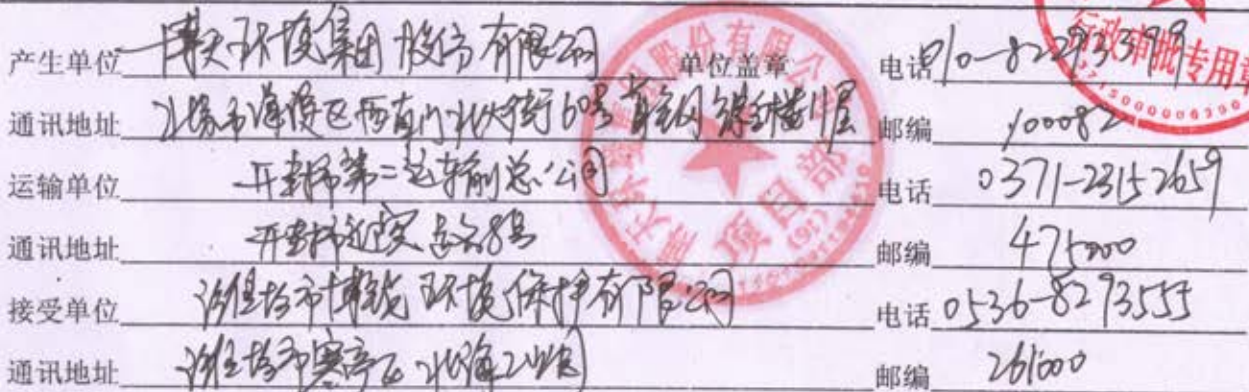 产生单位 博天环境集团股份有限公司 单位盖章 电话 010-82293399
通讯地址 北京市海淀区西直门北大街60号首钢综合楼11层 邮编 100082
运输单位 开封市第二运输总公司 电话 0371-23152659
通讯地址 开封市 邮编 475000
接受单位 潍坊市博锐环境保护有限公司 电话 0536-8293555
通讯地址 潍坊市寒亭区北海工业园 邮编 261000
行政审批专用章
项目部